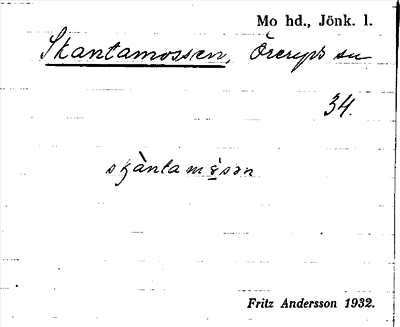 Mo hd., Jönk. l.
Skantamossen, Öreryds sn
34.
skàntamåsən
Fritz Andersson 1932.